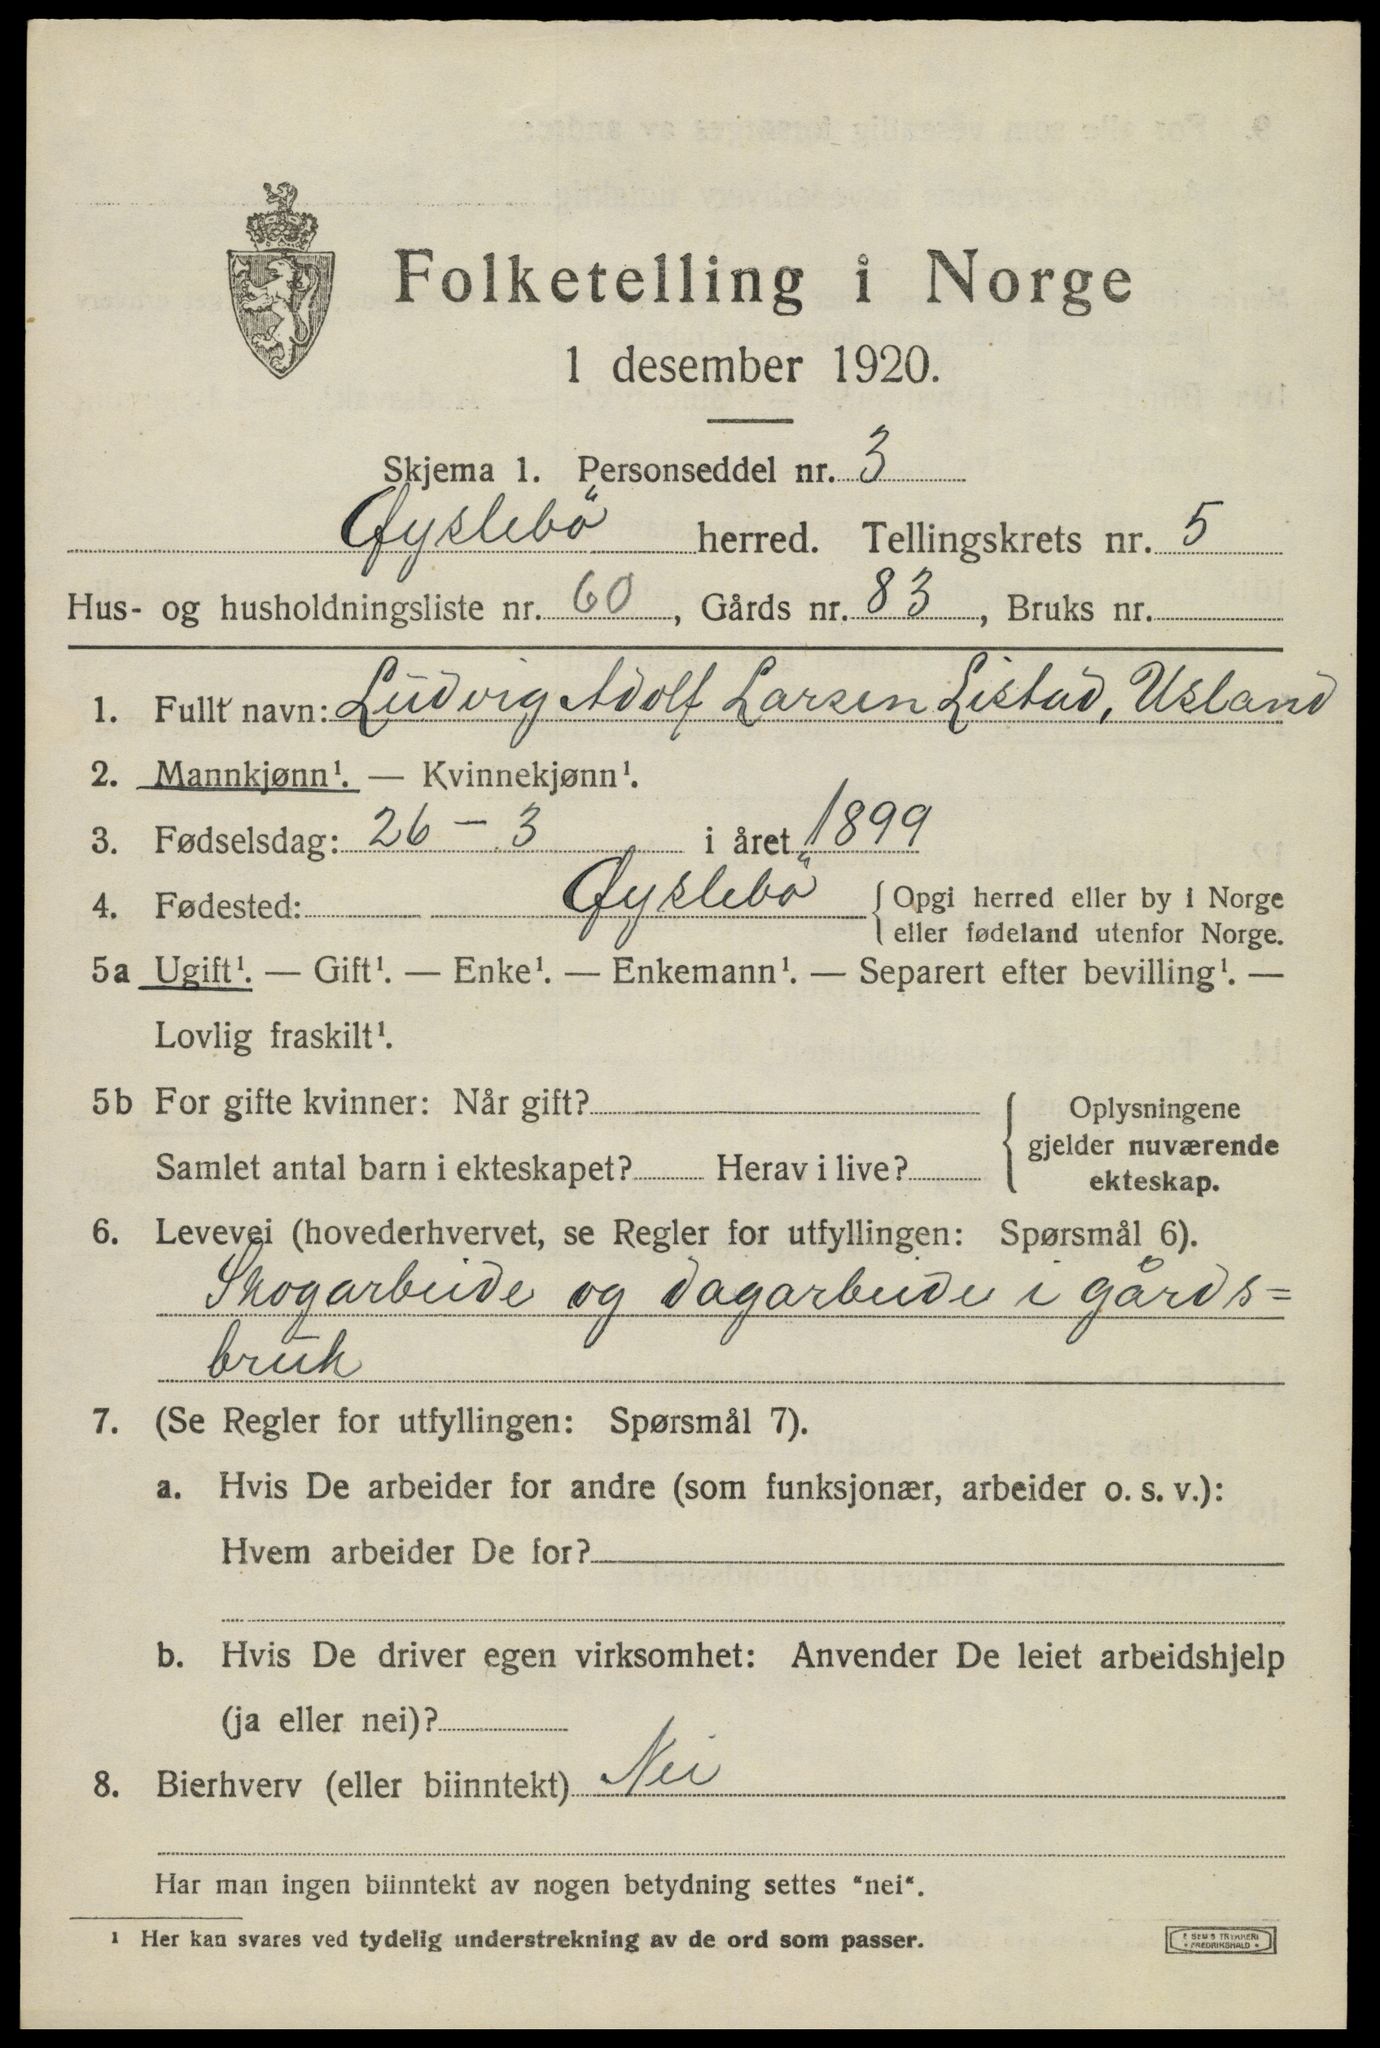 Folketelling i Norge
1 desember 1920.
Skjema 1. Personseddel nr. 3
Øyslebö herred. Tellingskrets nr. 5
Hus- og husholdningsliste nr. 60, Gårds nr. 83, Bruks nr.
1. Fullt navn: Ludvig Adolf Larsen Listad, Usland
2. Mannkjønn¹. — Kvinnekjønn¹.
3. Fødselsdag: 26 – 3 i året 1899
4. Fødested: Øyslebö { Opgi herred eller by i Norge
eller fødeland utenfor Norge.
5a Ugift¹. — Gift¹. — Enke¹. — Enkemann¹. — Separert efter bevilling¹. —
Lovlig fraskilt¹.
5b For gifte kvinner: Når gift?
Samlet antal barn i ekteskapet? Herav i live?
{ Oplysningene
gjelder nuværende
ekteskap.
6. Levevei (hovederhvervet, se Regler for utfyllingen: Spørsmål 6).
Skogarbeide og dagarbeide i gårds=
bruk
7. (Se Regler for utfyllingen: Spørsmål 7).
a. Hvis De arbeider for andre (som funksjonær, arbeider o. s. v.):
Hvem arbeider De for?
b. Hvis De driver egen virksomhet: Anvender De leiet arbeidshjelp
(ja eller nei)?
8. Bierhverv (eller biinntekt) Nei
Har man ingen biinntekt av nogen betydning settes "nei".
¹ Her kan svares ved tydelig understrekning av de ord som passer.
E SEM'S TRYKKERI
FREDRIKSHALD